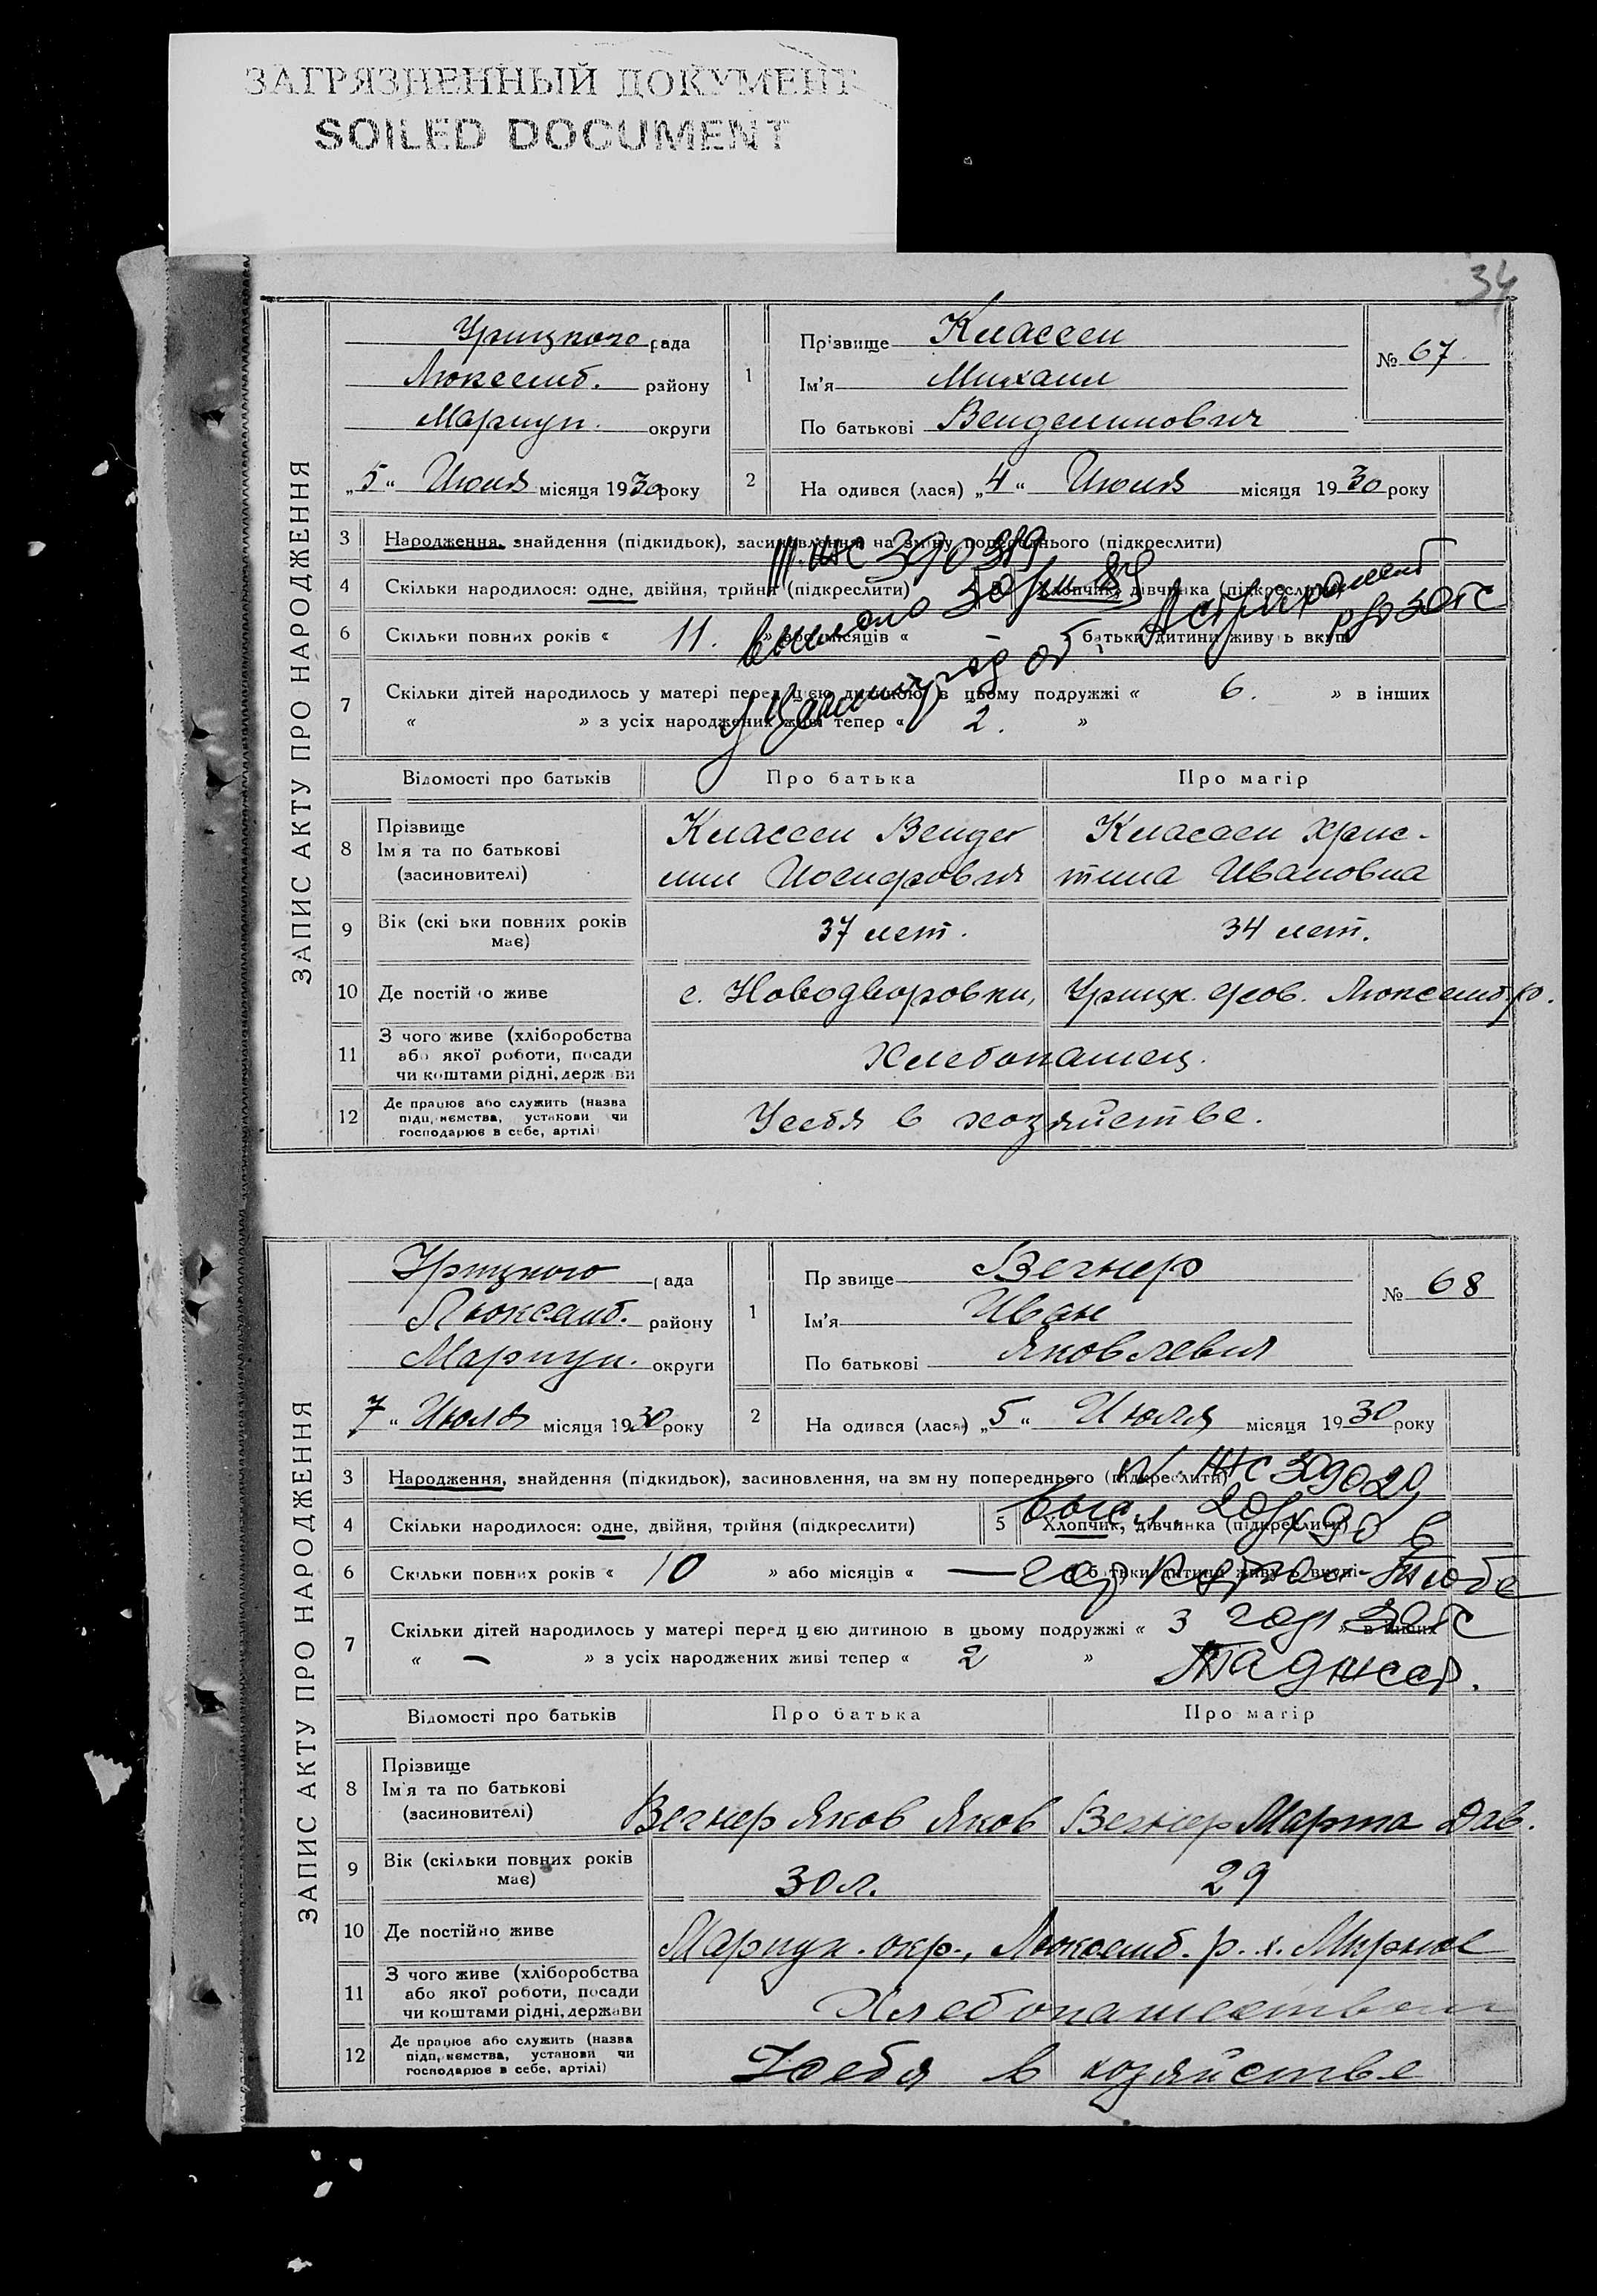 ЗАГРЯЗНЕННЫЙ ДОКУМЕНТ
SOILED DOCUMENT
34
ЗАПИС АКТУ ПРО НАРОДЖЕННЯ
Урицкого рада
Люксемб. району
Мариуп. округи
„5“ Июля місяця 1930 року
1 Прізвище Классен
Ім'я Михаил
По батькові Венделинович
№ 67
2 На одився (лася) „4“ Июля місяця 1930 року
3 Народження, знайдення (підкидьок), засиновлення, на зміну попереднього (підкреслити)
4 Скільки народилося: одне, двійня, трійня (підкреслити) Хлопчик, дівчинка (підкреслити)
6 Скільки повних років « 11. » або місяців « батьки дитини живуть вкупі
7 Скільки дітей народилось у матері перед цією дитиною в цьому подружжі « 6. » в інших
« » з усіх народжених живі тепер « 2. »
Відомості про батьків Про батька Про матір
8 Прізвище
Ім'я та по батькові
(засиновителі)
Классен Вендел
лин Иосифович
Классен Хрис-
тина Ивановна
9 Вік (скі ьки повних років
має)
37 лет. 34 лет.
10 Де постій о живе с. Новодворовки, Урицк. Люксемб. р.
11 З чого живе (хліборобства
або якої роботи, посади
чи коштами рідні, держ ви
Хлебопашец.
12 Де працює або служить (назва
підп, иємства, установи чи
господарює в себе, артілі)
У себя в хозяйстве.
ЗАПИС АКТУ ПРО НАРОДЖЕННЯ
Урицкого рада
Люксемб. району
Мариуп. округи
7 “ Июля місяця 1930 року
1 Пр звище Вегнер
Ім'я Иван
По батькові Яковлевич
№ 68
2 На одився (лася) „5“ Июля місяця 1930 року
3 Народження, знайдення (підкидьок), засиновлення, на зм ну попереднього (підкреслити)
4 Скільки народилося: одне, двійня, трійня (підкреслити) 5 Хлопчик, дівчинка (підкреслити)
6 Скільки повних років « 10 » або місяців « — б тьки дитини живу ь вкупі
7 Скільки дітей народилось у матері перед цією дитиною в цьому подружжі « 3 » в інших
« — » з усіх народжених живі тепер « 2 »
Таджсср.
Відомості про батьків Про батька Про матір
8 Прізвище
Ім'я та по батькові
(засиновителі)
Вегнер Яков Яков Вегнер Марта Дав.
9 Вік (скільки повних років
має)
30 л. 29
10 Де постійно живе Мариуп. окр., Люксемб. р. х. Мирное
11 З чого живе (хліборобства
або якої роботи, посади
чи коштами рідні, держави
Хлебопашеством
12 Де працює або служить (назва
підп, иємства, установи чи
господарює в себе, артілі)
У себя в хозяйстве